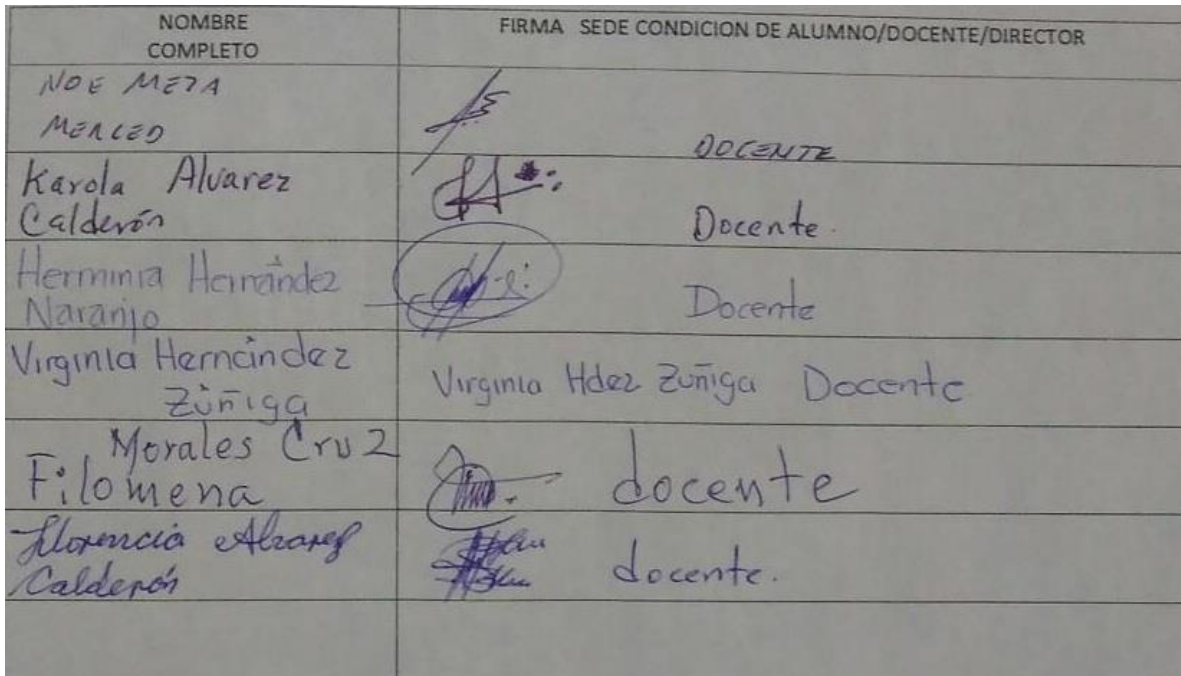 NOMBRE
COMPLETO
FIRMA SEDE CONDICION DE ALUMNO/DOCENTE/DIRECTOR
NOE MEZA
MERCED
DOCENTE
Karola Alvarez
Calderón
Docente.
Herminia Hernández
Naranjo
Docente
Virginia Hernández
Zúñiga
Virginia Hdez Zuñiga Docente
Morales Cruz
Filomena
docente
Florencia Alvarez
Calderón
docente.